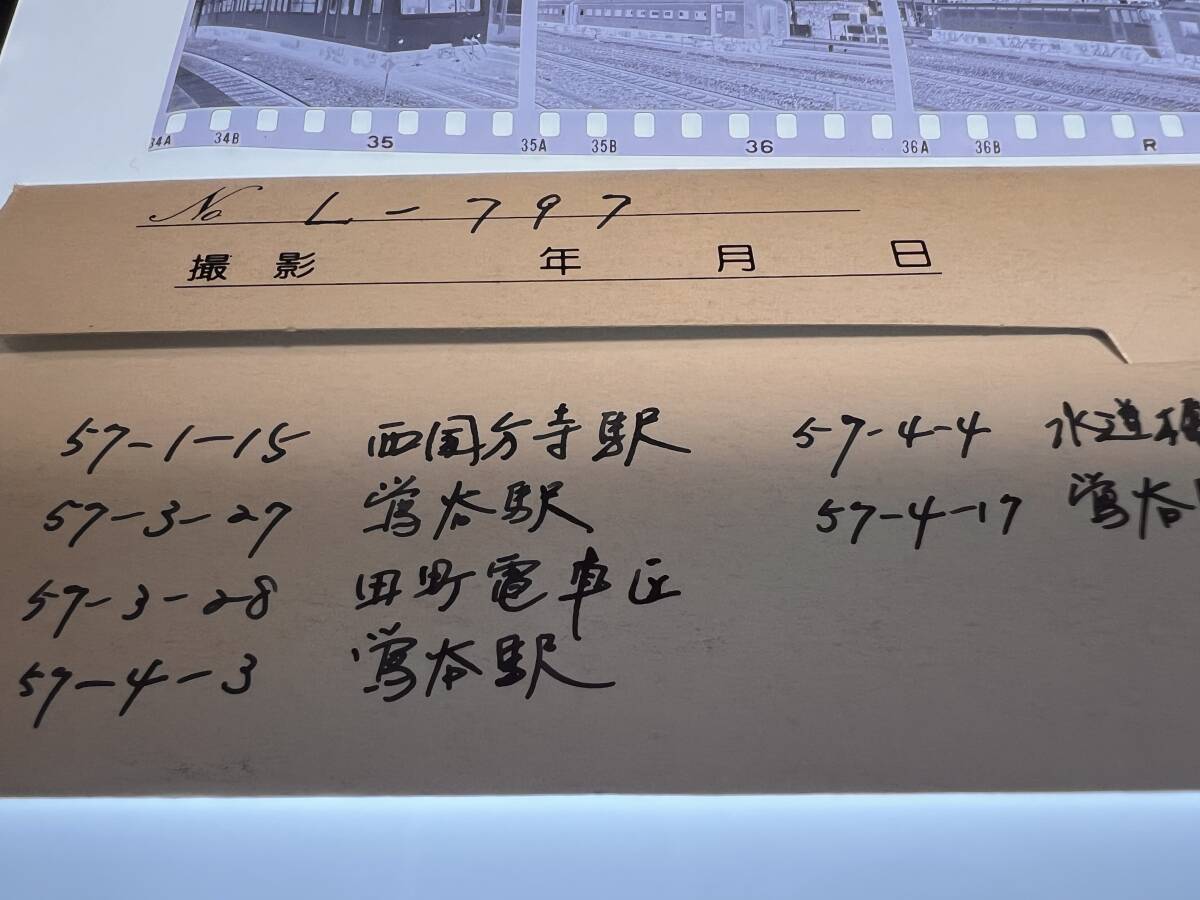 34A 34B 35 35A 35B 36 36A 36B R
No L-797
撮影 年 月 日
57-1-15 西国分寺駅
57-3-27 鶯谷駅
57-3-28 田町電車区
57-4-3 鶯谷駅
57-4-4 水道橋
57-4-17 鶯谷